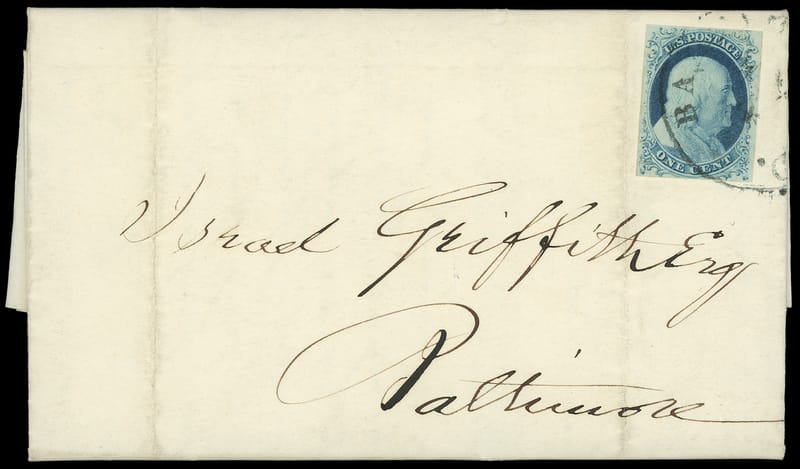 U.S. POSTAGE
BA
ONE CENT
Israel Griffith Esq
Baltimore